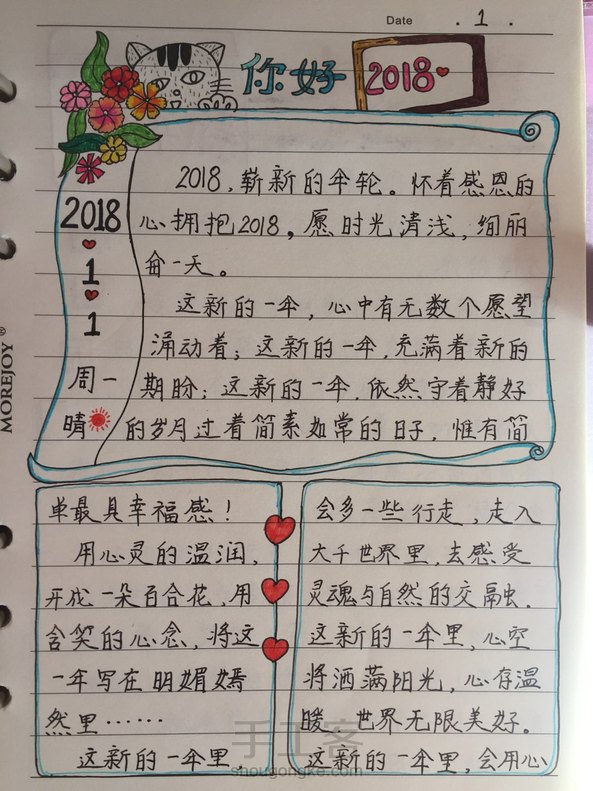 Date . 1 .
你好 2018
2018
1
1
周一
晴
2018,崭新的年轮。怀着感恩的
心拥抱2018,愿时光清浅,绚丽
每一天。
这新的一年,心中有无数个愿望
涌动着;这新的一年,充满着新的
期盼;这新的一年,依然守着静好
的岁月过着简素如常的日子,惟有简
单最具幸福感!
用心灵的温润,
开成一朵百合花,用
含笑的心念,将这
一年写在明媚嫣
然里······
这新的一年里,
会多一些行走,走入
大千世界里,去感受
灵魂与自然的交融.
这新的一年里,心空
将洒满阳光,心存温
暖,世界无限美好。
这新的一年里,会用心
MOREJOY®
手工客
shougongke.com